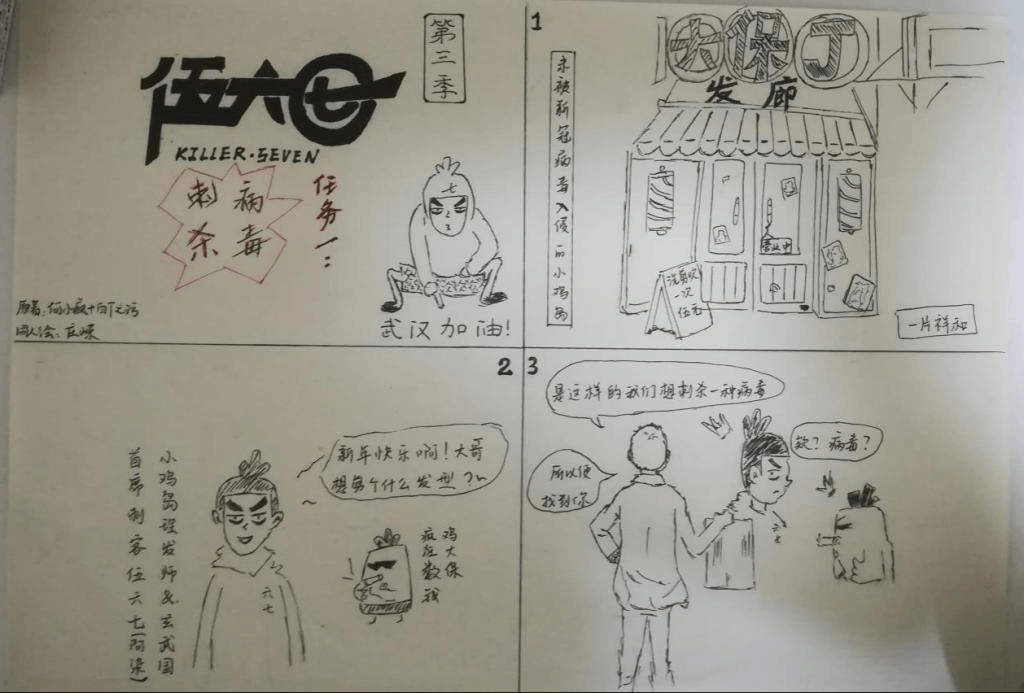 第三季
伍六七
KILLER·SEVEN
任务一:
刺杀
病毒
七
武汉加油!
原著:何小疯
同人绘:
1
未被新冠病毒入侵的小鸡岛
大保丁
发廊
营业中
洗剪吹
一次
伍元
一片祥和
2
小鸡岛理发师&玄武国
首席刺客伍六七(阿柒)
新年快乐啊!大哥
想剪个什么发型?~
六七
鸡大保
疯狂数钱
3
是这样的我们想刺杀一种病毒
所以便
找到你
欸?病毒?
六七